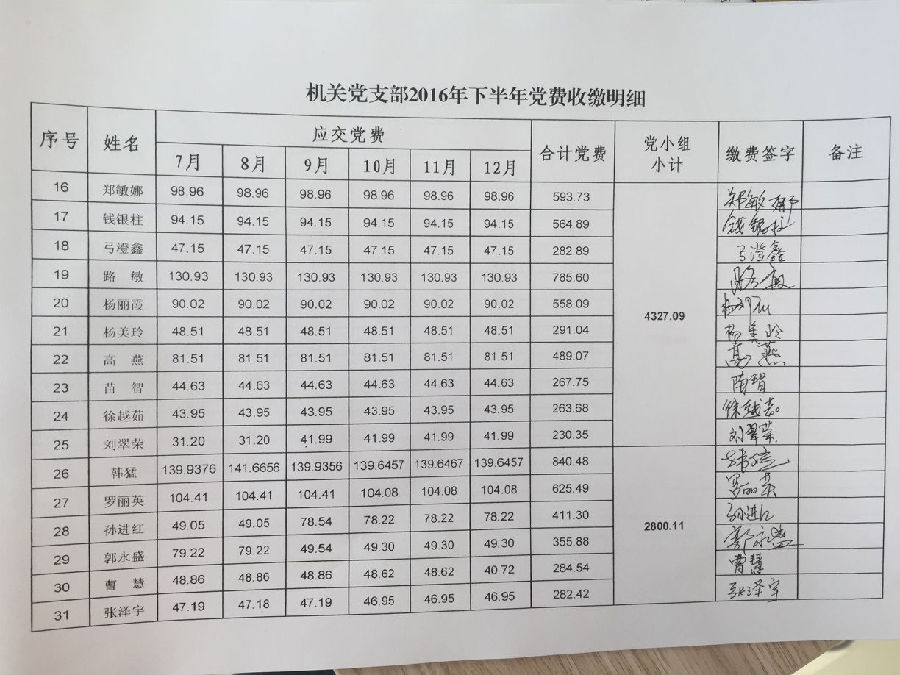 机关党支部2016年下半年党费收缴明细
序号 姓名 应交党费 合计党费 党小组小计 缴费签字 备注
7月 8月 9月 10月 11月 12月
16 郑敏娜 98.96 98.96 98.96 98.96 98.96 98.96 593.73 郑敏娜
17 钱银柱 94.15 94.15 94.15 94.15 94.15 94.15 564.89 钱银柱
18 弓澄鑫 47.15 47.15 47.15 47.15 47.15 47.15 282.89 弓澄鑫
19 路敏 130.93 130.93 130.93 130.93 130.93 130.93 785.60 路敏
20 杨丽霞 90.02 90.02 90.02 90.02 90.02 90.02 558.09
4327.09
21 杨美玲 48.51 48.51 48.51 48.51 48.51 48.51 291.04 杨美玲
22 高燕 81.51 81.51 81.51 81.51 81.51 81.51 489.07 高燕
23 苗智 44.63 44.63 44.63 44.63 44.63 44.63 267.75
24 徐越茹 43.95 43.95 43.95 43.95 43.95 43.95 263.68 徐越茹
25 刘翠荣 31.20 31.20 41.99 41.99 41.99 41.99 230.35 刘翠荣
26 韩猛 139.9376 141.6656 139.9356 139.6457 139.6467 139.6457 840.48
27 罗丽英 104.41 104.41 104.41 104.08 104.08 104.08 625.49
28 孙进红 49.05 49.05 78.54 78.22 78.22 78.22 411.30 孙进红
2800.11
29 郭永盛 79.22 79.22 49.54 49.30 49.30 49.30 355.88 郭永盛
30 曹慧 48.86 48.86 48.86 48.62 48.62 40.72 284.54 曹慧
31 张泽宇 47.19 47.18 47.19 46.95 46.95 46.95 282.42 张泽宇